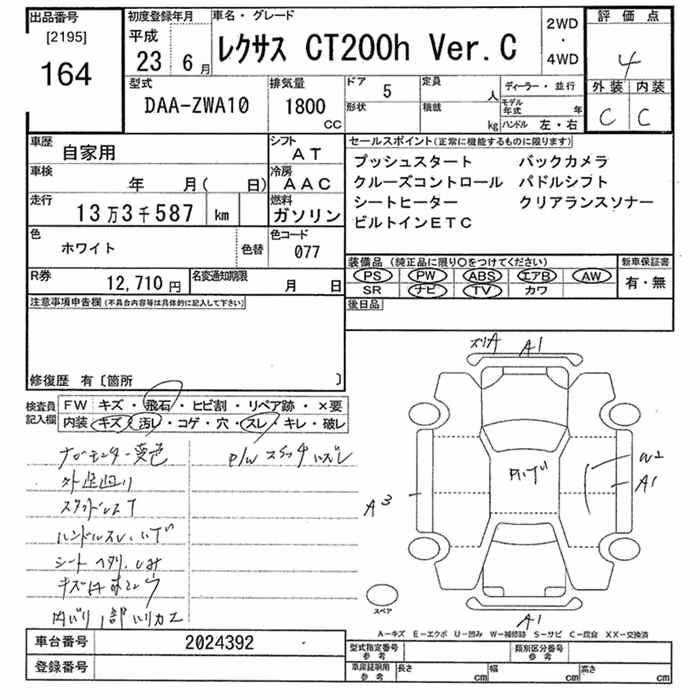 出品番号
[2195]
164
初度登録年月
平成
23 6月
車名・グレード
レクサス CT200h Ver.C
2WD
・
4WD
評価点
4
外装 内装
C C
型式
DAA-ZWA10
排気量
1800
CC
ドア 5
形状
定員 人
積載 kg
ディーラー・並行
モデル年式 年
ハンドル 左・右
車歴
自家用
シフト
AT
車検
年 月( 日)
冷房
AAC
走行
13万3千587 km
燃料
ガソリン
色
ホワイト
色替
色コード
077
R券
12,710円
名変通知期限
月 日
セールスポイント(正常に機能するものに限ります)
プッシュスタート バックカメラ
クルーズコントロール パドルシフト
シートヒーター クリアランスソナー
ビルトインETC
装備品(純正品に限り○をつけてください)
PS PW ABS エアB AW
SR ナビ TV カワ
新車保証書
有・無
後日品
注意事項申告欄(不具合内容等は具体的に記入して下さい)
修復歴 有〔箇所 〕
検査員
記入欄
FW キズ・飛石・ヒビ割・リペア跡・×要
内装 キズ・汚レ・コゲ・穴・スレ・キレ・破レ
P/W スイッチハズレ
ハンドルスレ
シート ヘタリ、しみ
A1
A3
W2
A1
A1
スペア
A-キズ E-エクボ U-凹み W-補修跡 S-サビ C-腐食 XX-交換済
車台番号 2024392
登録番号
型式指定番号
参考
類別区分番号
参考
車庫証明用
参考
長さ cm
幅 cm
高さ cm